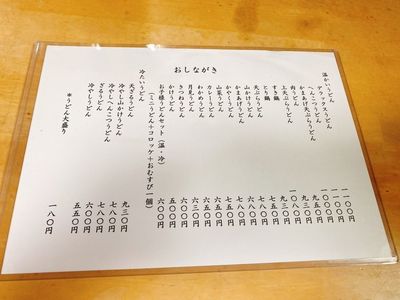 おしながき
温かいうどん
デラックスうどん 一一〇〇円
へんこつうどん 一一〇〇円
かまあげ天ぷらうどん 一〇〇〇円
上天ぷらうどん 九五〇円
肉うどん 九三〇円
とり鍋 一〇八〇円
すき鍋 九三〇円
天ぷらうどん 七八〇円
山かけうどん 七八〇円
かまあげうどん 六八〇円
かやくうどん 七八〇円
山菜うどん 六五〇円
カレーうどん 七五〇円
わかめうどん 六五〇円
月見うどん 六三〇円
きつねうどん 六〇〇円
かけうどん 五〇〇円
お子様うどんセット(温・冷) 六〇〇円
(ミニうどん+コロッケ+おむすび一個)
冷たいうどん
天ざるうどん 九三〇円
冷やし山かけうどん 七八〇円
冷やしへんこつうどん 七八〇円
ざるうどん 六〇〇円
冷やしうどん 五五〇円
*うどん大盛り 一八〇円